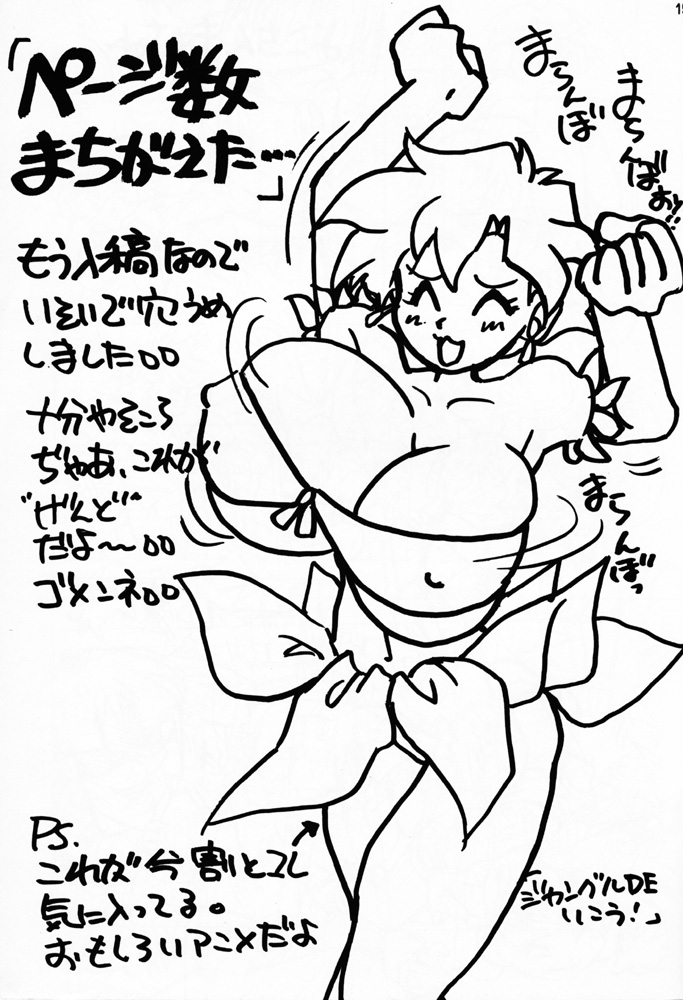 「ページ数
まちがえた…」
もう入稿なので
いそいで穴うめ
しました。。
十分やそころ
ぢゃあ、これが
"げんど"
だよ〜。。
ゴメンネ。。
まらんぼ
まらんばぉッ!!
まらんぼっ
PS.
これが今割とコレ
気に入ってる。
おもしろいアニメだよ
「ジャングルDE
いこう!」